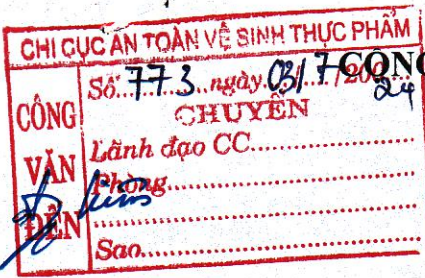 CHI CỤC AN TOÀN VỆ SINH THỰC PHẨM
CÔNG VĂN ĐẾN
Số: 773 ngày 03/7/2024
CỘNG
CHUYỂN
Lãnh đạo CC
Phòng
Sao